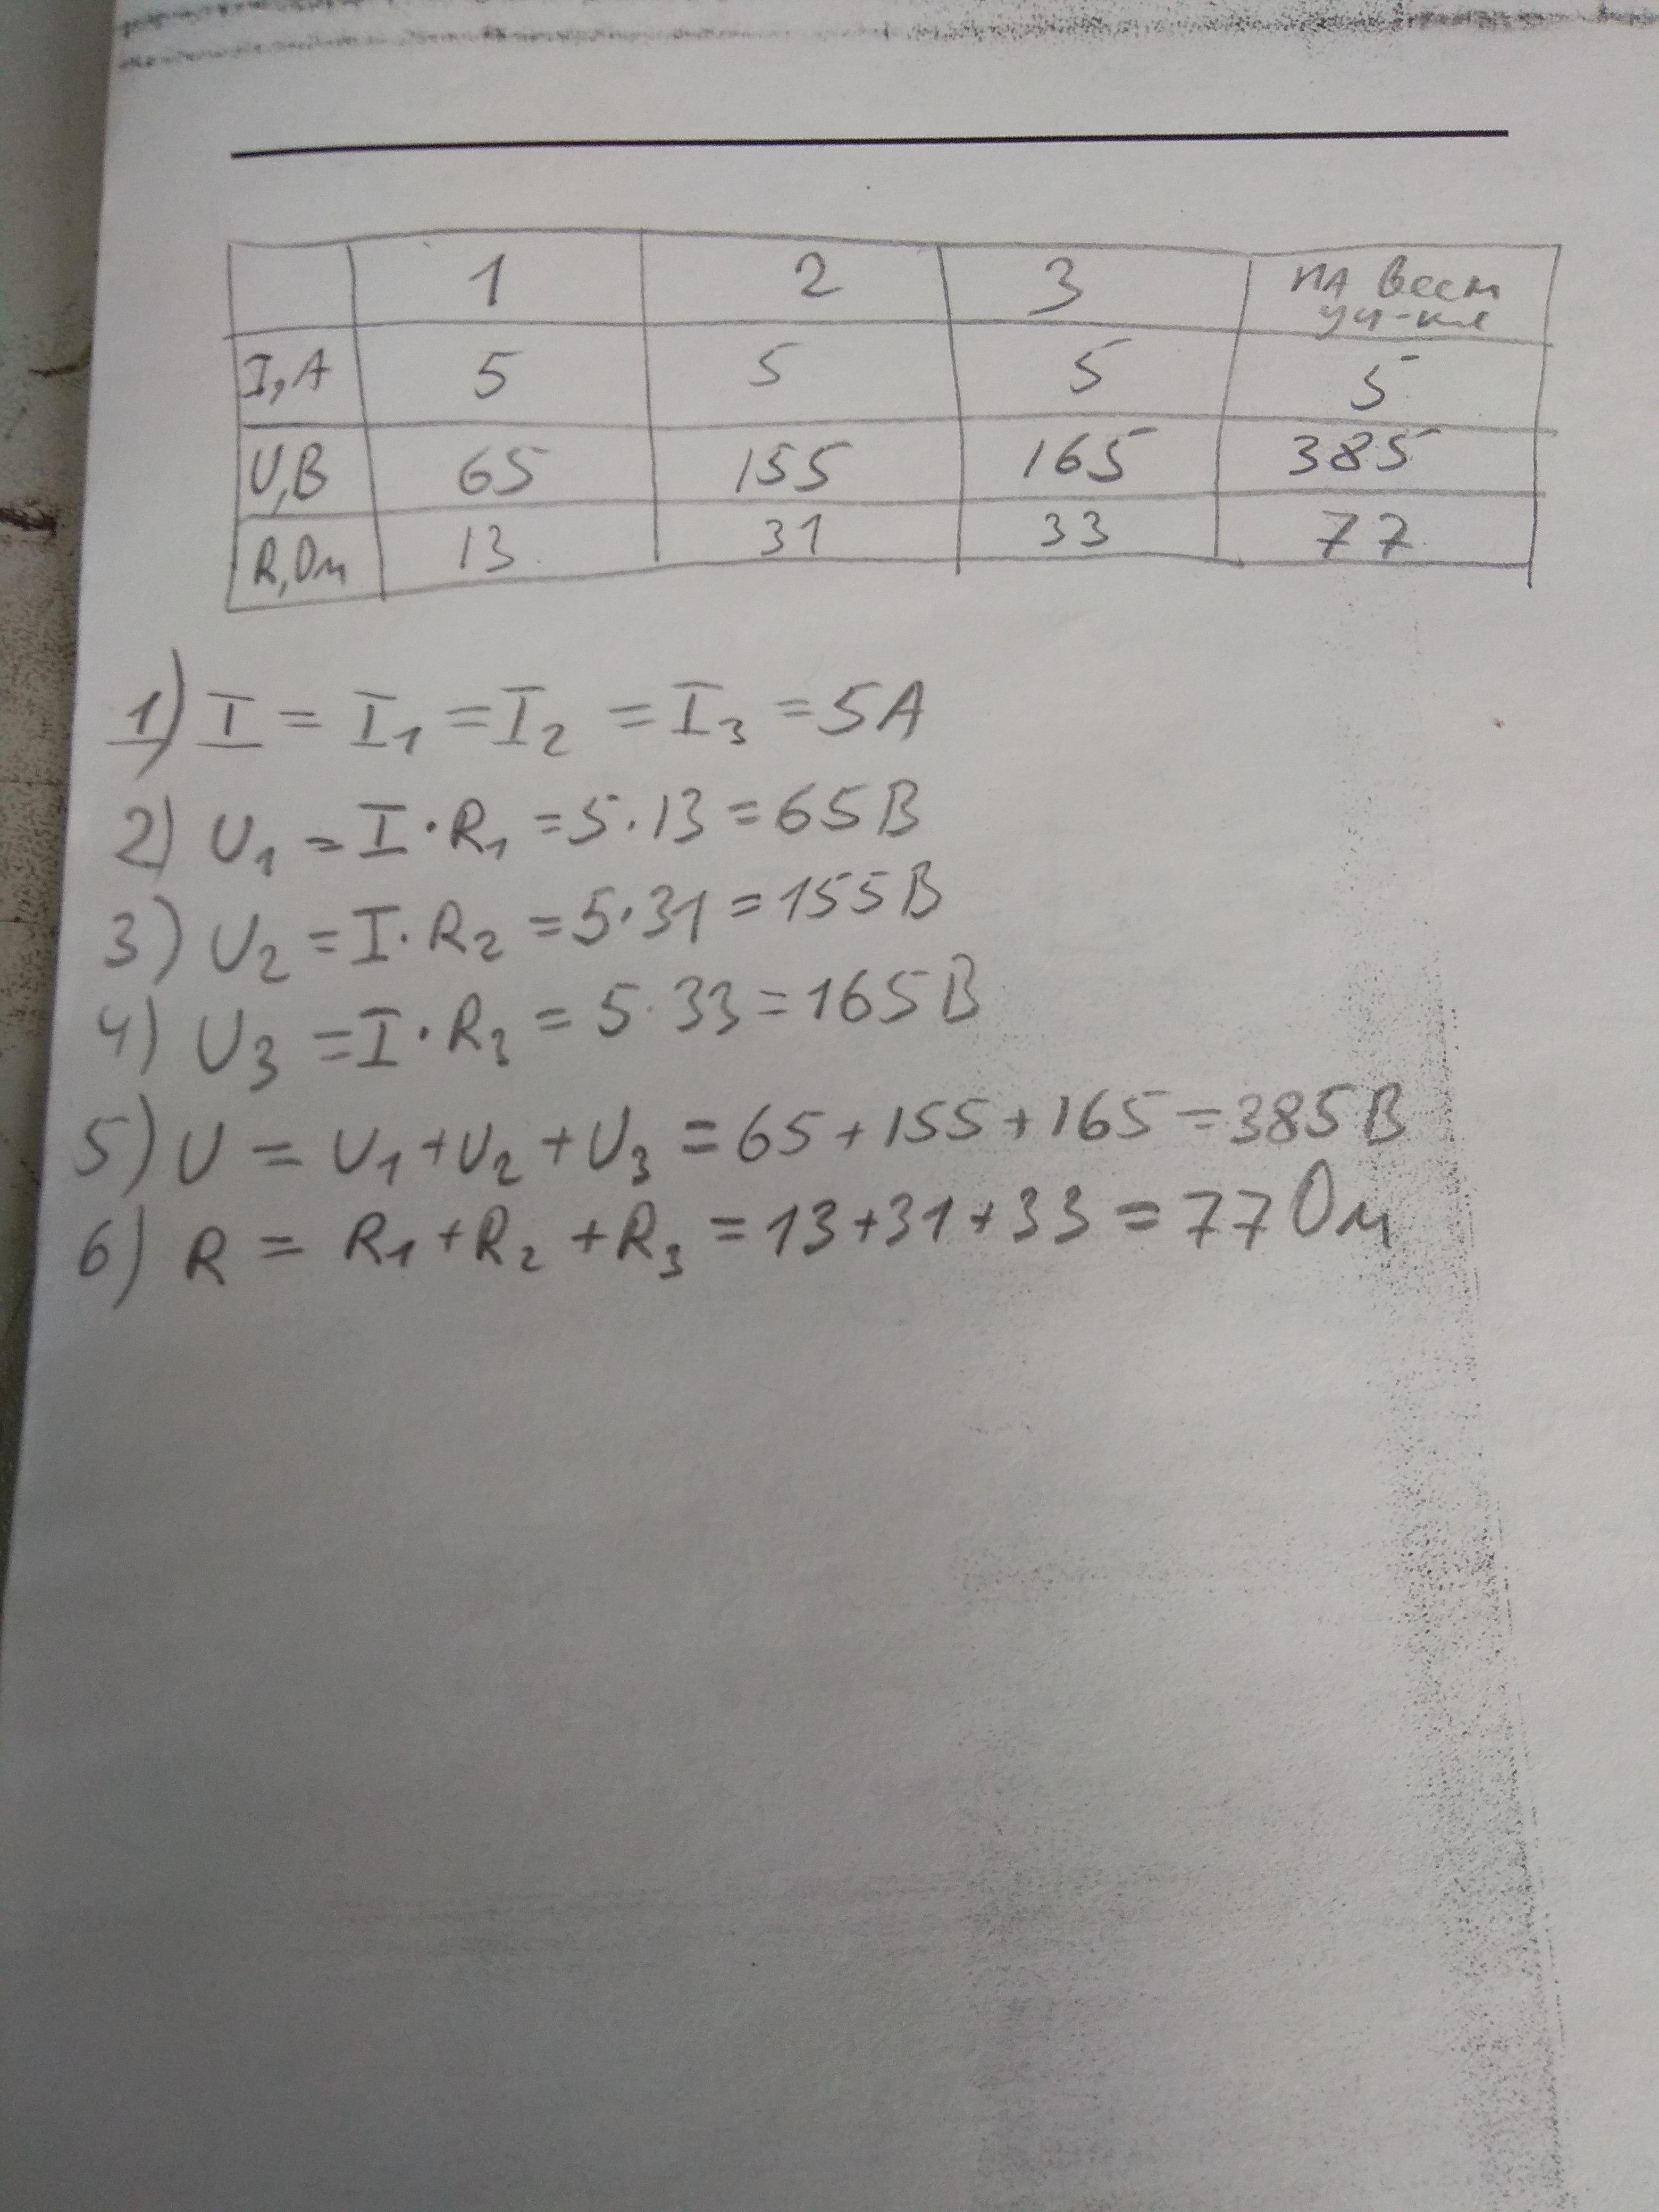 1 2 3 на всем уч-ке
I, A 5 5 5 5
U, B 65 155 165 385
R, Ом 13 31 33 77
1) I = I₁ = I₂ = I₃ = 5A
2) U₁ = I · R₁ = 5 · 13 = 65 B
3) U₂ = I · R₂ = 5 · 31 = 155 B
4) U₃ = I · R₃ = 5 · 33 = 165 B
5) U = U₁ + U₂ + U₃ = 65 + 155 + 165 = 385 B
6) R = R₁ + R₂ + R₃ = 13 + 31 + 33 = 77 Ом